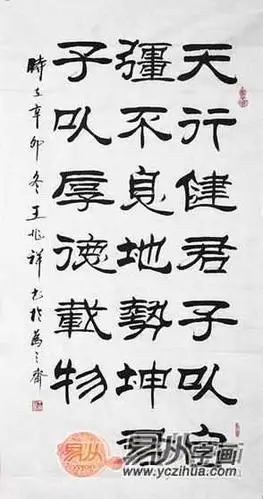 天行健君子以
彊不息地勢坤君
子以厚德載物
時在辛卯冬王兆祥书於
易从字画
www.yczihua.com